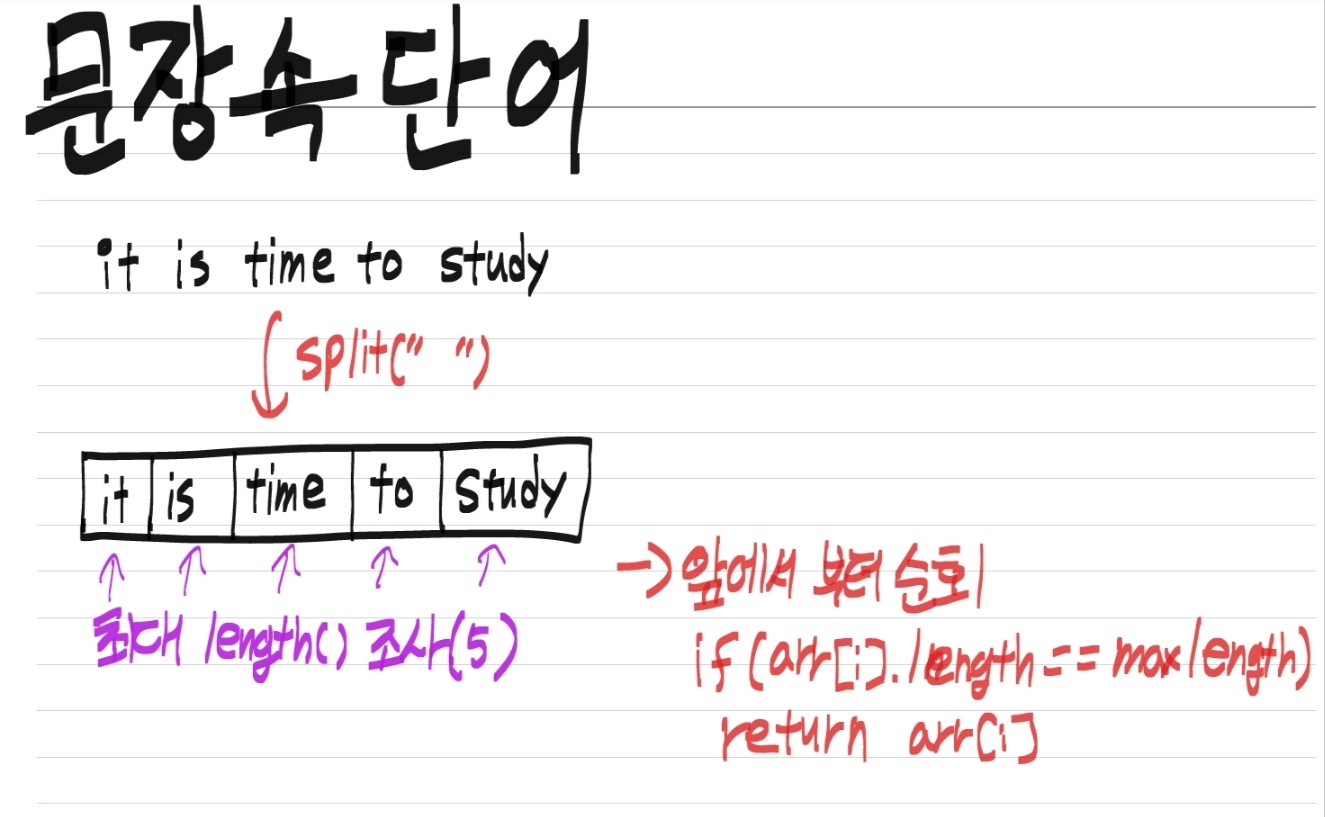 문장속 단어
it is time to study
split(" ")
it is time to study
최대 length() 조사(5)
→ 앞에서 부터 순회
if (arr[i].length == maxlength)
return arr[i]